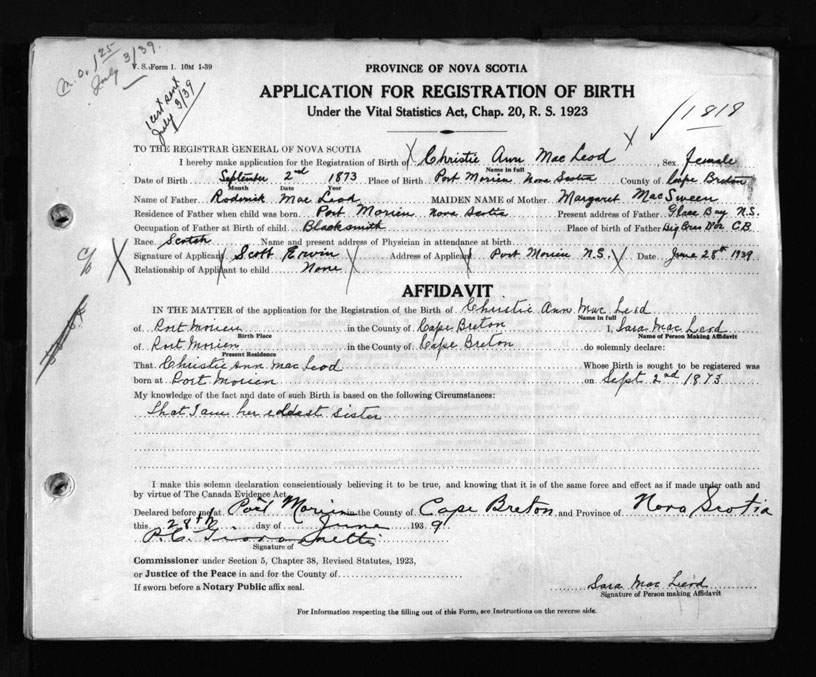 July 3/39.
V. S. Form 1. 10M 1-39
1 cert sent
July 3/39
PROVINCE OF NOVA SCOTIA
APPLICATION FOR REGISTRATION OF BIRTH
Under the Vital Statistics Act, Chap. 20, R. S. 1923
TO THE REGISTRAR GENERAL OF NOVA SCOTIA
I hereby make application for the Registration of Birth of Christie Ann Mac Leod, Sex female
Name in full
Date of Birth September 2nd 1873 Place of Birth Port Morien Nova Scotia County of Cape Breton
Month Date Year
Name of Father Roderick Mac Leod MAIDEN NAME of Mother Margaret MacSween
Residence of Father when child was born Port Morien Nova Scotia Present address of Father Glace Bay N.S.
Occupation of Father at Birth of child Blacksmith Place of birth of Father Big Bras D'or C.B.
Race Scotch Name and present address of Physician in attendance at birth
Signature of Applicant Scott Erwin Address of Applicant Port Morien N.S. Date June 28th 1939
Relationship of Applicant to child None
AFFIDAVIT
IN THE MATTER of the application for the Registration of the Birth of Christie Ann Mac Leod
Name in full
of Port Morien in the County of Cape Breton I, Sara Mac Leod
Birth Place Name of Person Making Affidavit
of Port Morien in the County of Cape Breton do solemnly declare:
Present Residence
That Christie Ann Mac Leod Whose Birth is sought to be registered was
born at Port Morien on Sept 2nd 1873
My knowledge of the fact and date of such Birth is based on the following Circumstances:
That I am her eldest sister
I make this solemn declaration conscientiously believing it to be true, and knowing that it is of the same force and effect as if made under oath and
by virtue of The Canada Evidence Act.
Declared before me at Port Morien in the County of Cape Breton and Province of Nova Scotia
this 28th day of June 1939
Signature of
Commissioner under Section 5, Chapter 38, Revised Statutes, 1923,
or Justice of the Peace in and for the County of
If sworn before a Notary Public affix seal.
Sara Mac Leod
Signature of Person making Affidavit
For Information respecting the filling out of this Form, see Instructions on the reverse side.